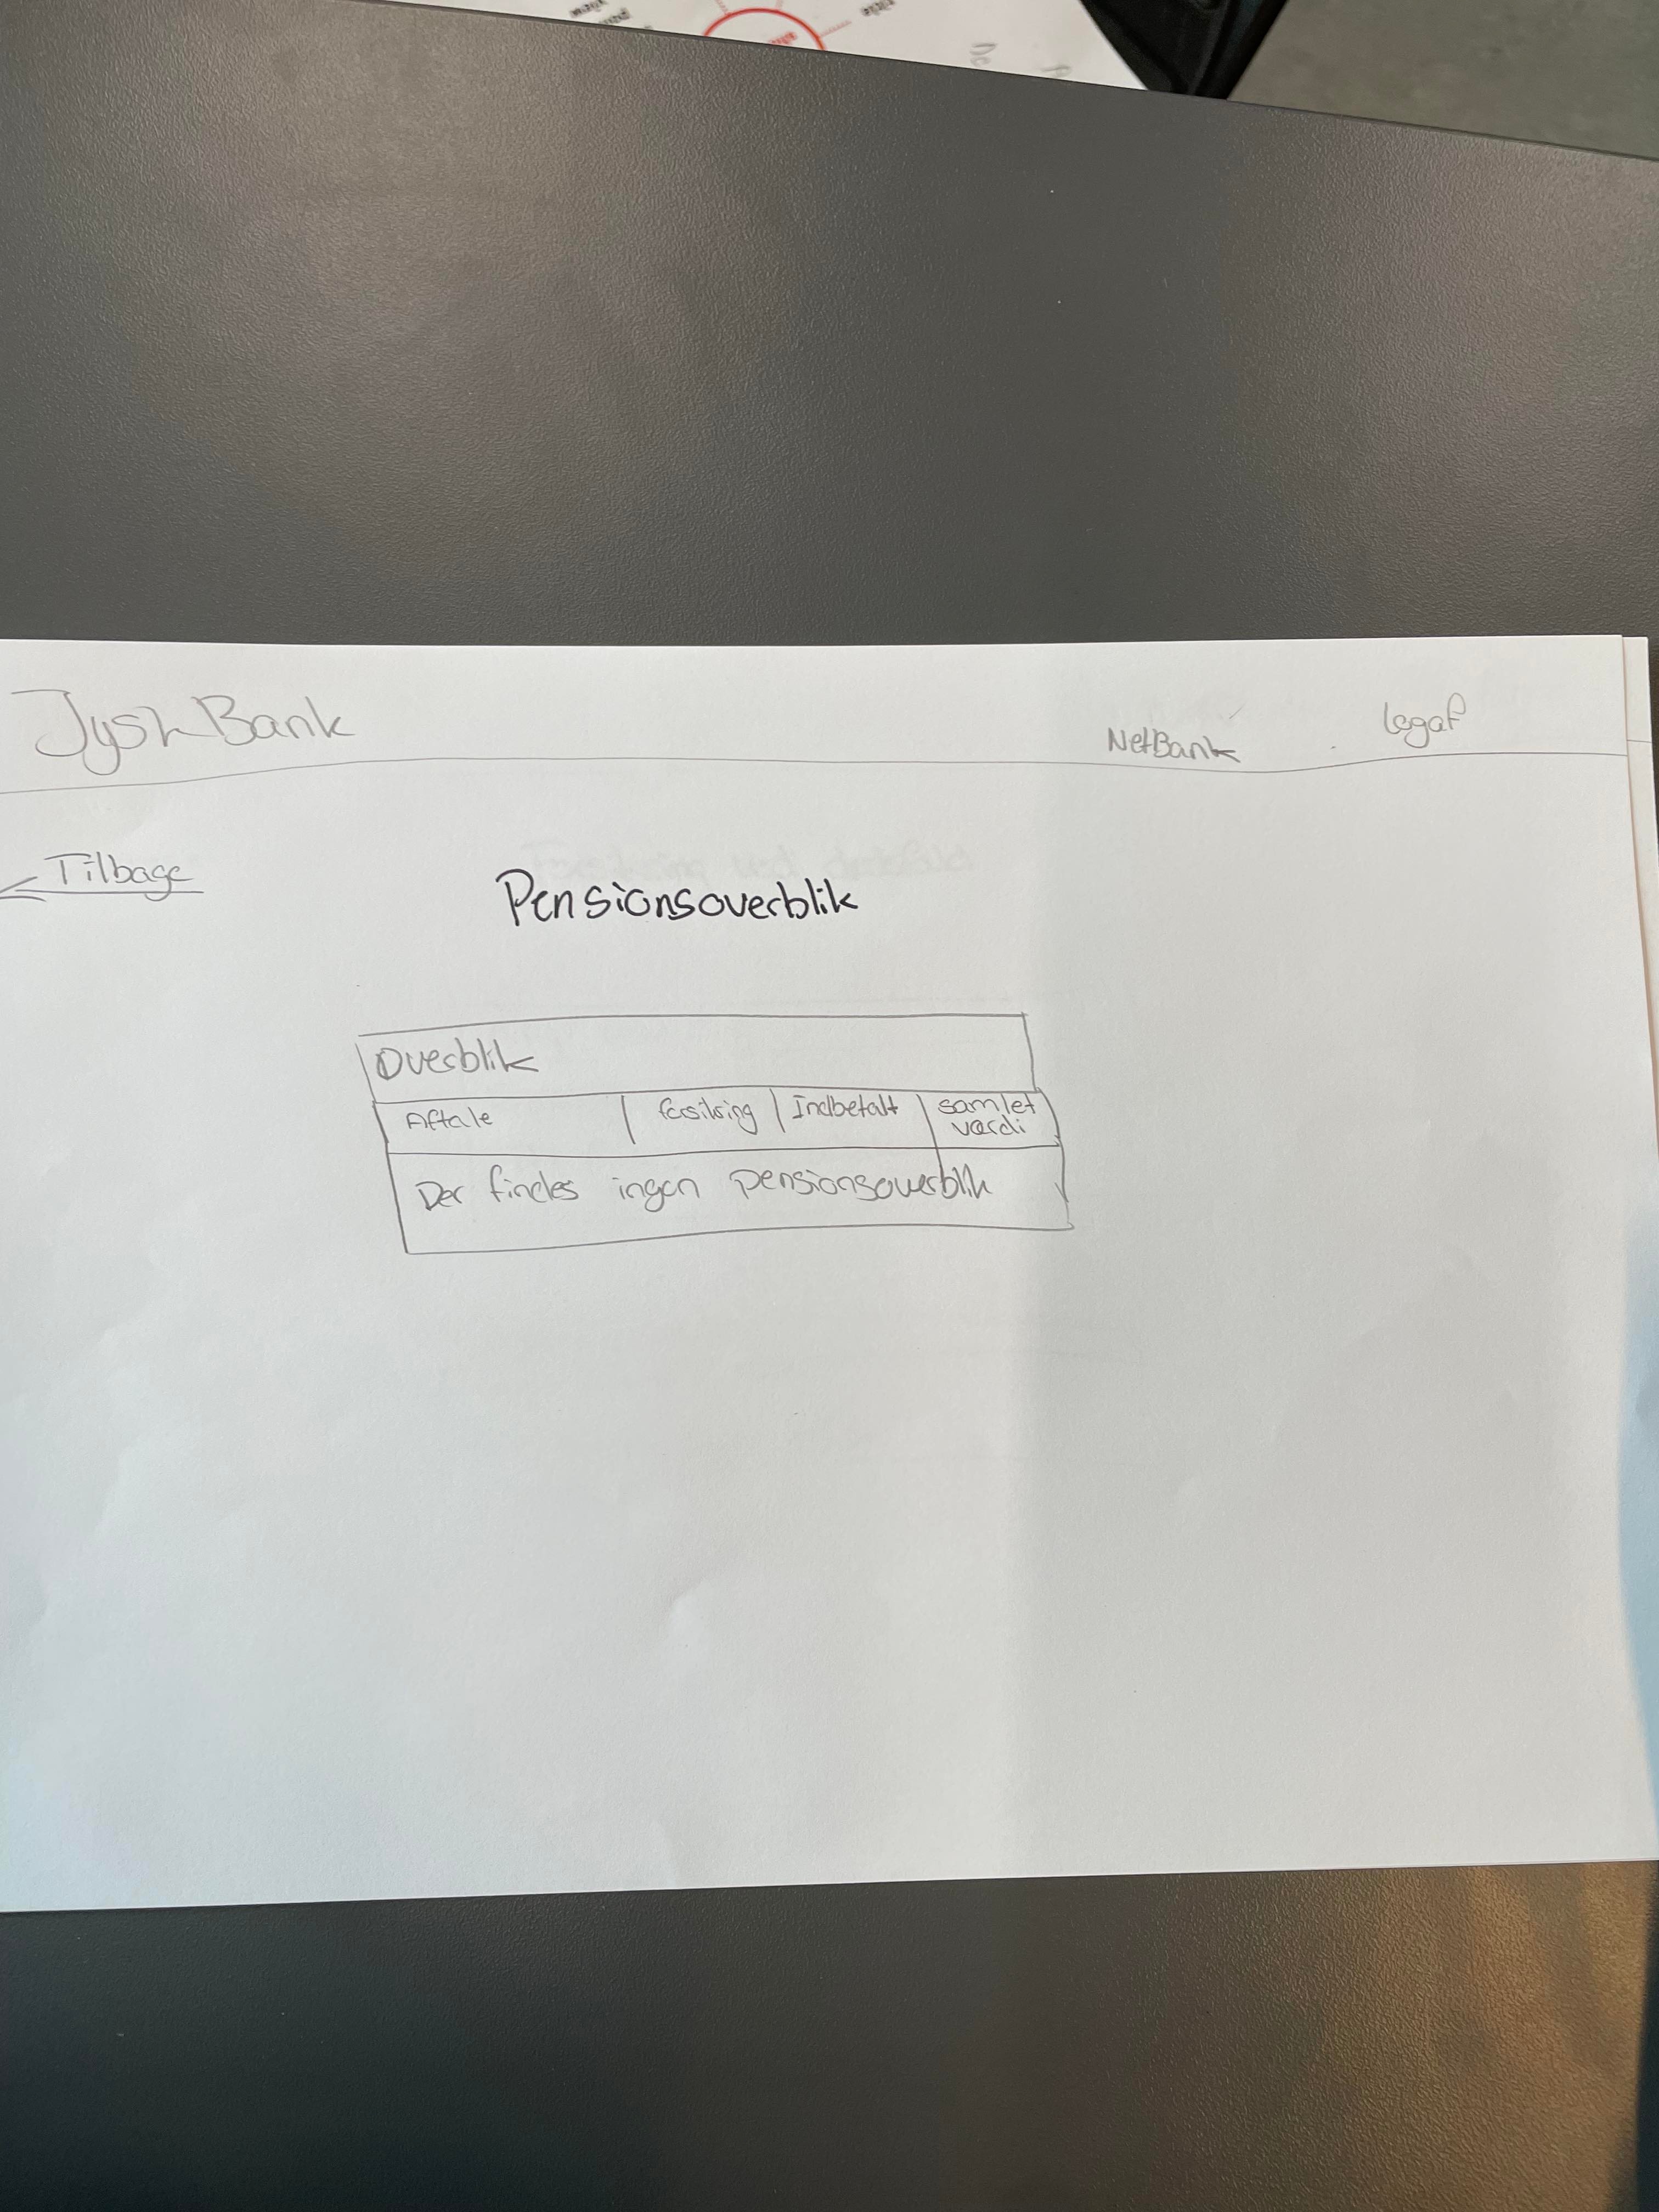 Jysk Bank
NetBank
Logaf
Tilbage
Pensionsoverblik
Overblik
Aftale
forsikring
Indbetalt
samlet
værdi
Der findes ingen pensionsoverblik